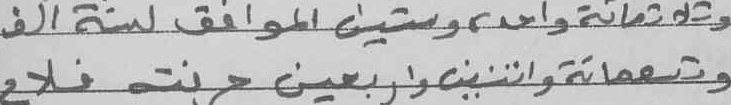 وثلاثمائة واحد وستين الموافق لسنة الف
وتسعمائة واثنين واربعين حرنته فلاح